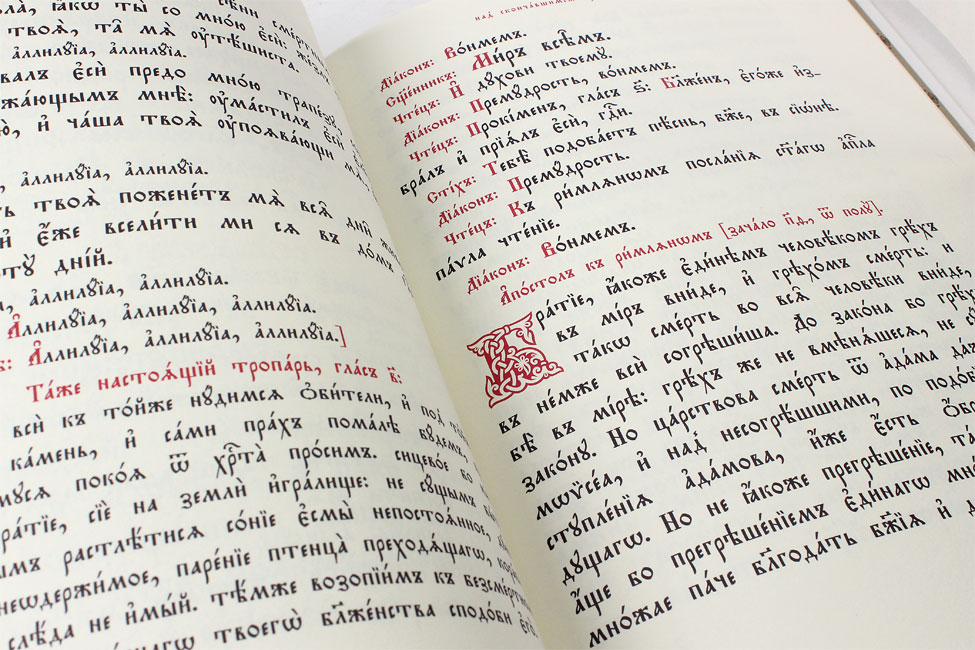 твоѧ̀, та мѧ̀ ᲂу҆тѣ́шиста.
а҆ллилꙋ́їа, а҆ллилꙋ́їа.
є҆сѝ предо мно́ю трапе́зꙋ,
мнѣ̀: ᲂу҆ма́стилъ є҆сѝ
и҆ ча́ша твоѧ̀ ᲂу҆поѧва́ющи
а҆ллилꙋ́їа, а҆ллилꙋ́їа.
твоѧ̀ пожене́тъ мѧ̀ всѧ̑ дни̑
и҆ є҆́же всели́ти ми сѧ въ до́мъ
дні́й.
а҆ллилꙋ́їа, а҆ллилꙋ́їа.
А҆ллилꙋ́їа, а҆ллилꙋ́їа, а҆ллилꙋ́їа.
А҆ллилꙋ́їа, а҆ллилꙋ́їа, а҆ллилꙋ́їа.]
Та́же настоѧ́щїй тропа́рь, гла́съ в҃:
всѝ къ то́йже нꙋ́димсѧ ѻ҆би́тели, и҆ под̾
ка́мень, и҆ са́ми пра́хъ пома́лѣ бꙋ́демъ,
поко́ѧ ѿ хрⷭ҇та̀ про́симъ. сицево́е бо
сїѐ на землѝ и҆гра́лище: не сꙋ́щымъ
растлѣ́тисѧ со́нїе є҆смы̀ непостоѧ́нное,
неѡдержи́мое, паре́нїе птенца̀ преходѧ́щагѡ,
слѣ́да не и҆мы́й. тѣ́мже возопїи́мъ къ
твоегѡ̀ бл҃же́нства сподо́би є҆го̀
над скончавшимсѧ
Дїа́конъ: Во́нмемъ.
Сщ҃е́нникъ: Ми́ръ всѣ̑мъ.
Чте́цъ: И҆ дꙋ́хови твоемꙋ̀.
Дїа́конъ: Премꙋ́дрость, во́нмемъ.
Чте́цъ: Проки́менъ, гла́съ ѕ҃: Бл҃же́нъ, є҆го́же и҆з_
бра́лъ и҆ прїѧ́лъ є҆сѝ, гдⷭ҇и.
Сті́хъ: Тебѣ̀ подоба́етъ пѣ́снь, бж҃е, въ сїѡ́нѣ.
Дїа́конъ: Премꙋ́дрость.
Чте́цъ: Къ ри́млѧнѡмъ посла́нїѧ ст҃а́гѡ а҆пⷭ҇ла
па́ѵла чте́нїе.
Дїа́конъ: Во́нмемъ.
А҆по́столъ къ ри́млѧнѡмъ [зача́ло п҃д, ѿ полꙋ̀].
Бра́тїе, ꙗ҆́коже є҆ди́нѣмъ человѣ́комъ грѣ́хъ
въ мі́ръ вни́де, и҆ грѣхо́мъ сме́рть: и
та́кѡ сме́рть во всѧ̑ человѣ́ки вни́де,
въ не́мже всѝ согрѣши́ша. До зако́на бо грѣ́хъ
бѣ̀ въ мі́рѣ: грѣ́хъ же не вмѣнѧ́шесѧ, не
зако́нꙋ. Но ца́рствова сме́рть ѿ а҆да́ма
мѡѷсе́а, и҆ над̾ несогрѣши́вшими, по подо́бїю
стꙋпле́нїѧ а҆да́мова, и҆́же є҆́сть ѻ҆́бразъ
дꙋ́щагѡ. Но не ꙗ҆́коже прегрѣше́нїе,
а҆́ще бо прегрѣше́нїемъ є҆ди́нагѡ
мно́жае па́че бл҃года́ть бж҃їѧ и҆